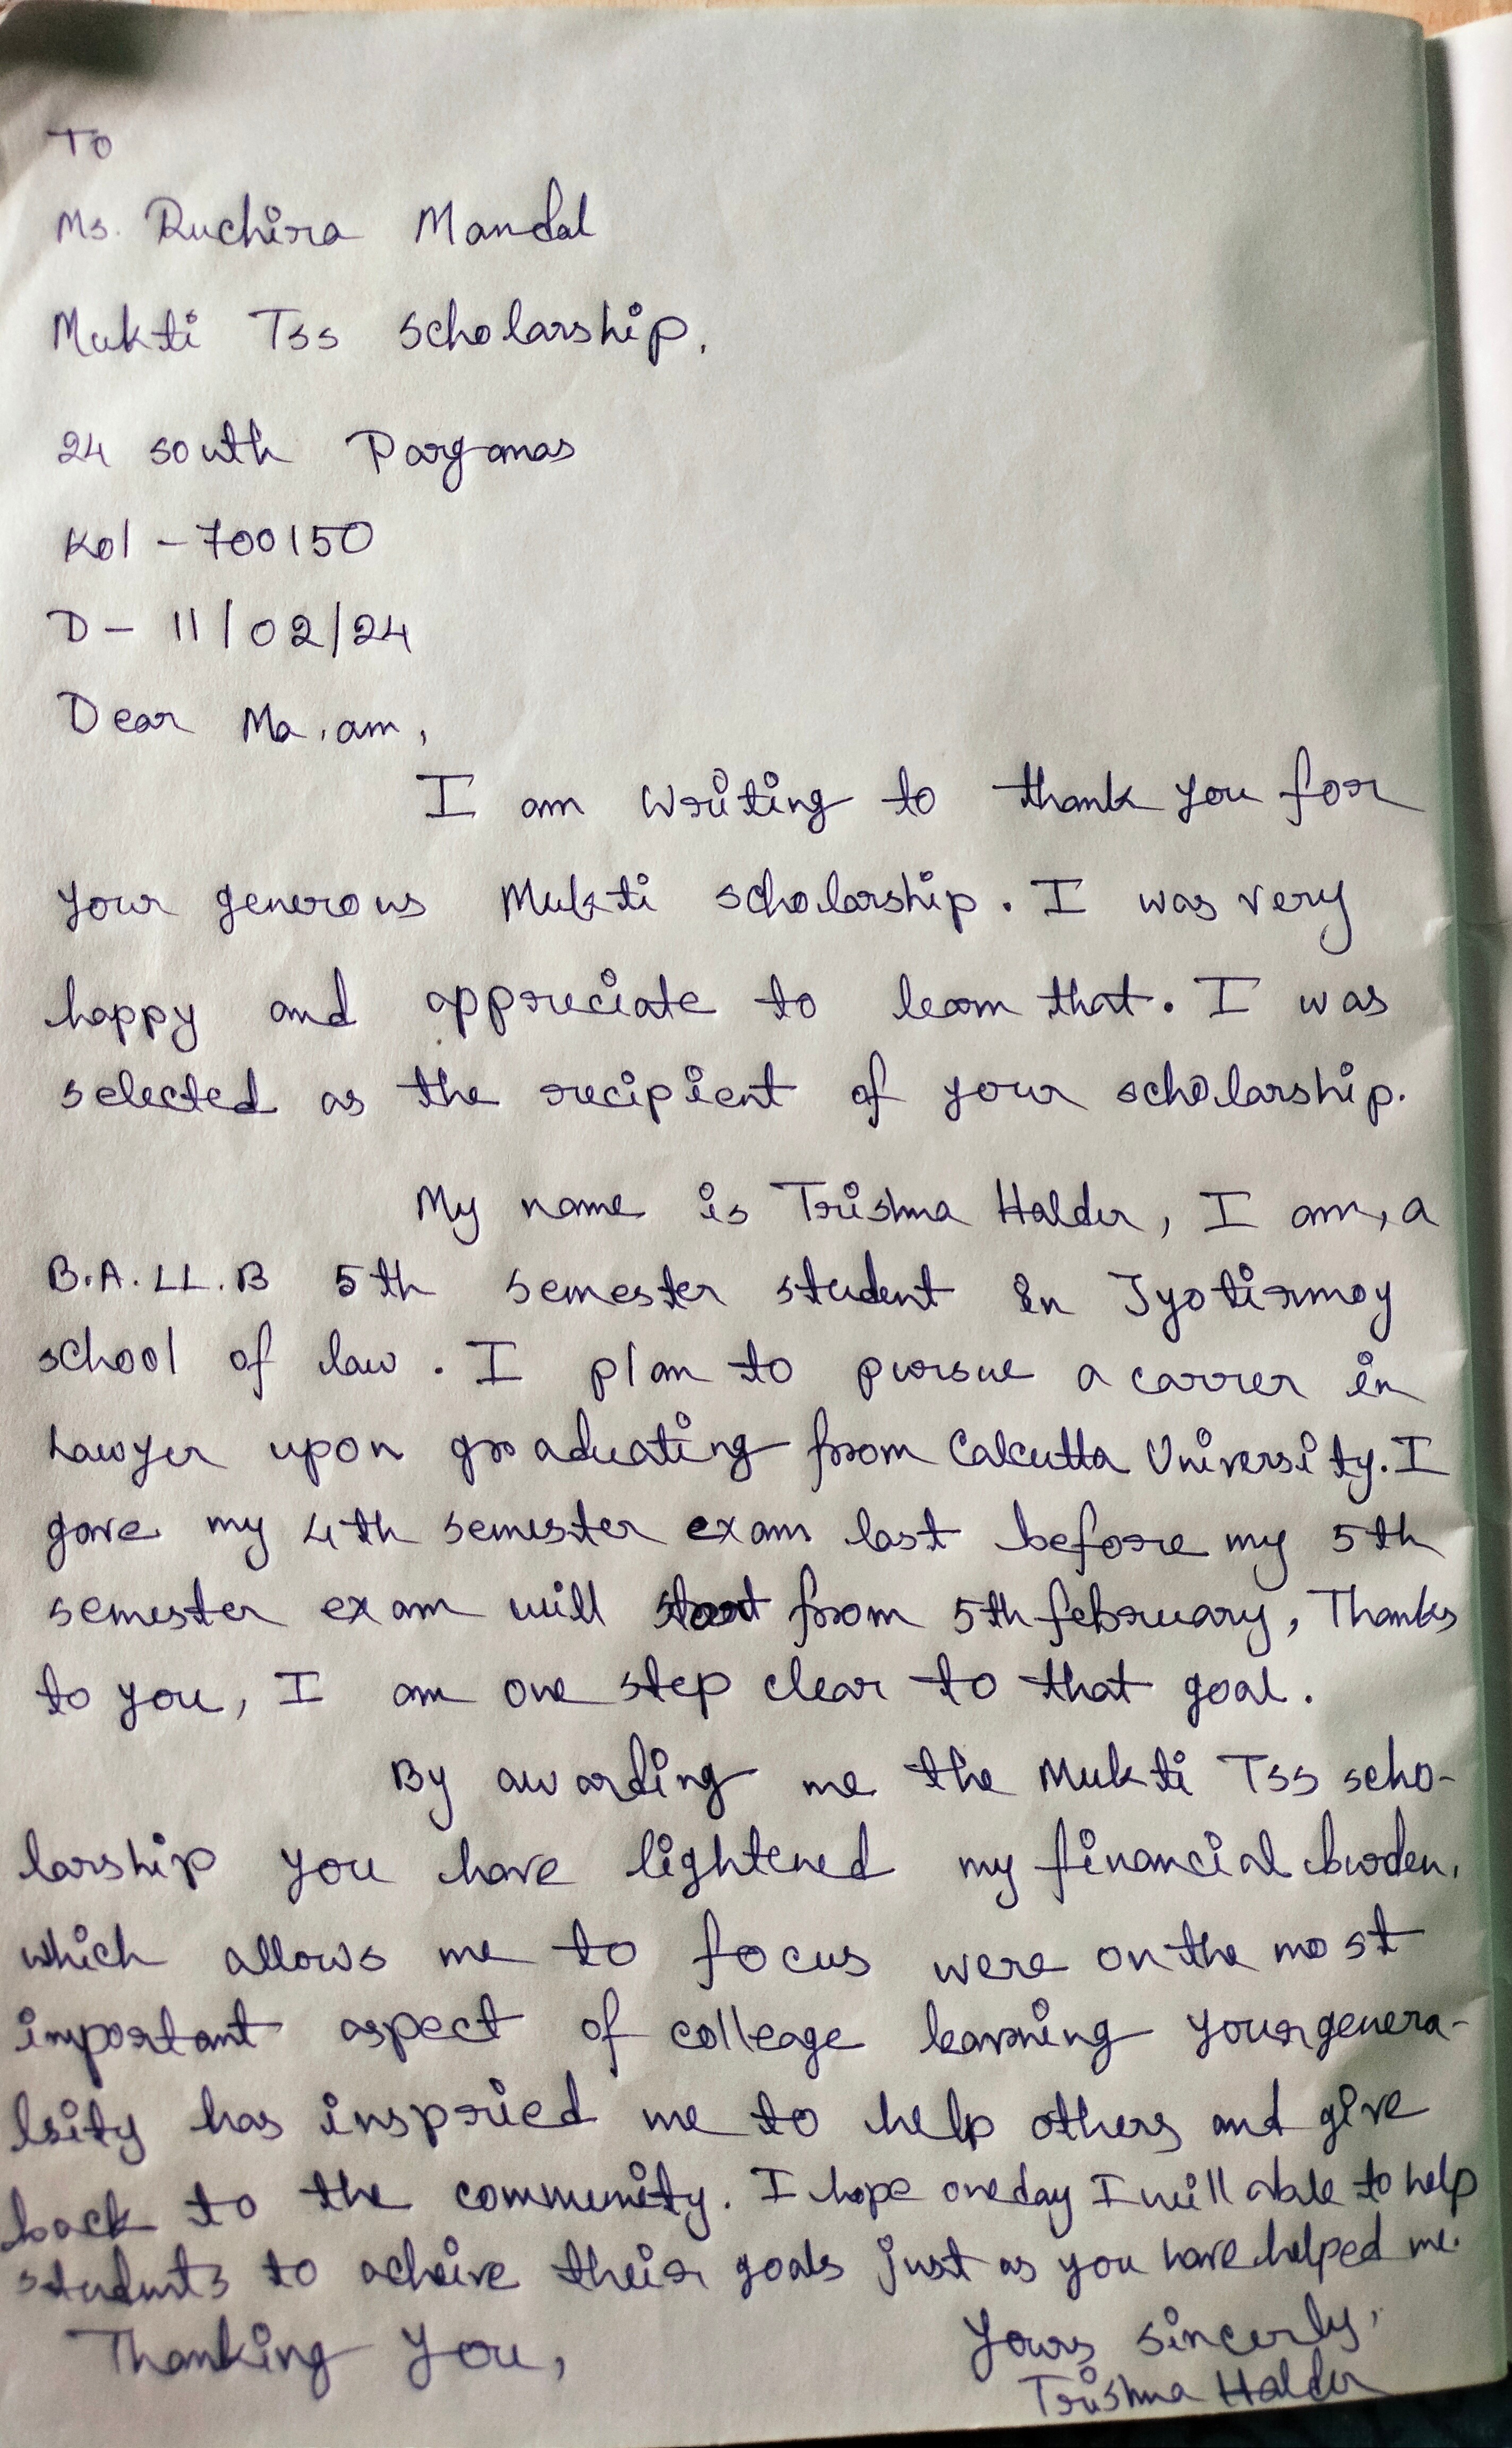 To
Ms. Ruchira Mandal
Mukti Tss scholarship,
24 south Parganas
Kol - 700150
D - 11/02/24
Dear Ma,am,
I am writing to thank you for
your generous Mukti scholarship. I was very
happy and appreciate to learn that. I was
selected as the recipient of your scholarship.
My name is Trishna Halder, I am, a
B.A. LL.B 5th semester student in Jyotirmoy
school of law. I plan to pursue a carrer in
Lawyer upon graduating from Calcutta University. I
gave my 4th semester exam last before my 5th
semester exam will start from 5th february, Thanks
to you, I am one step clear to that goal.
By awarding me the Mukti Tss scho-
larship you have lightened my financial burden,
which allows me to focus were on the most
important aspect of colleage learning your genera-
lsity has inspried me to help others and give
back to the community. I hope one day I will able to help
students to acheive their goals just as you have helped me.
Thanking You,
Yours sincerly,
Trishna Halder